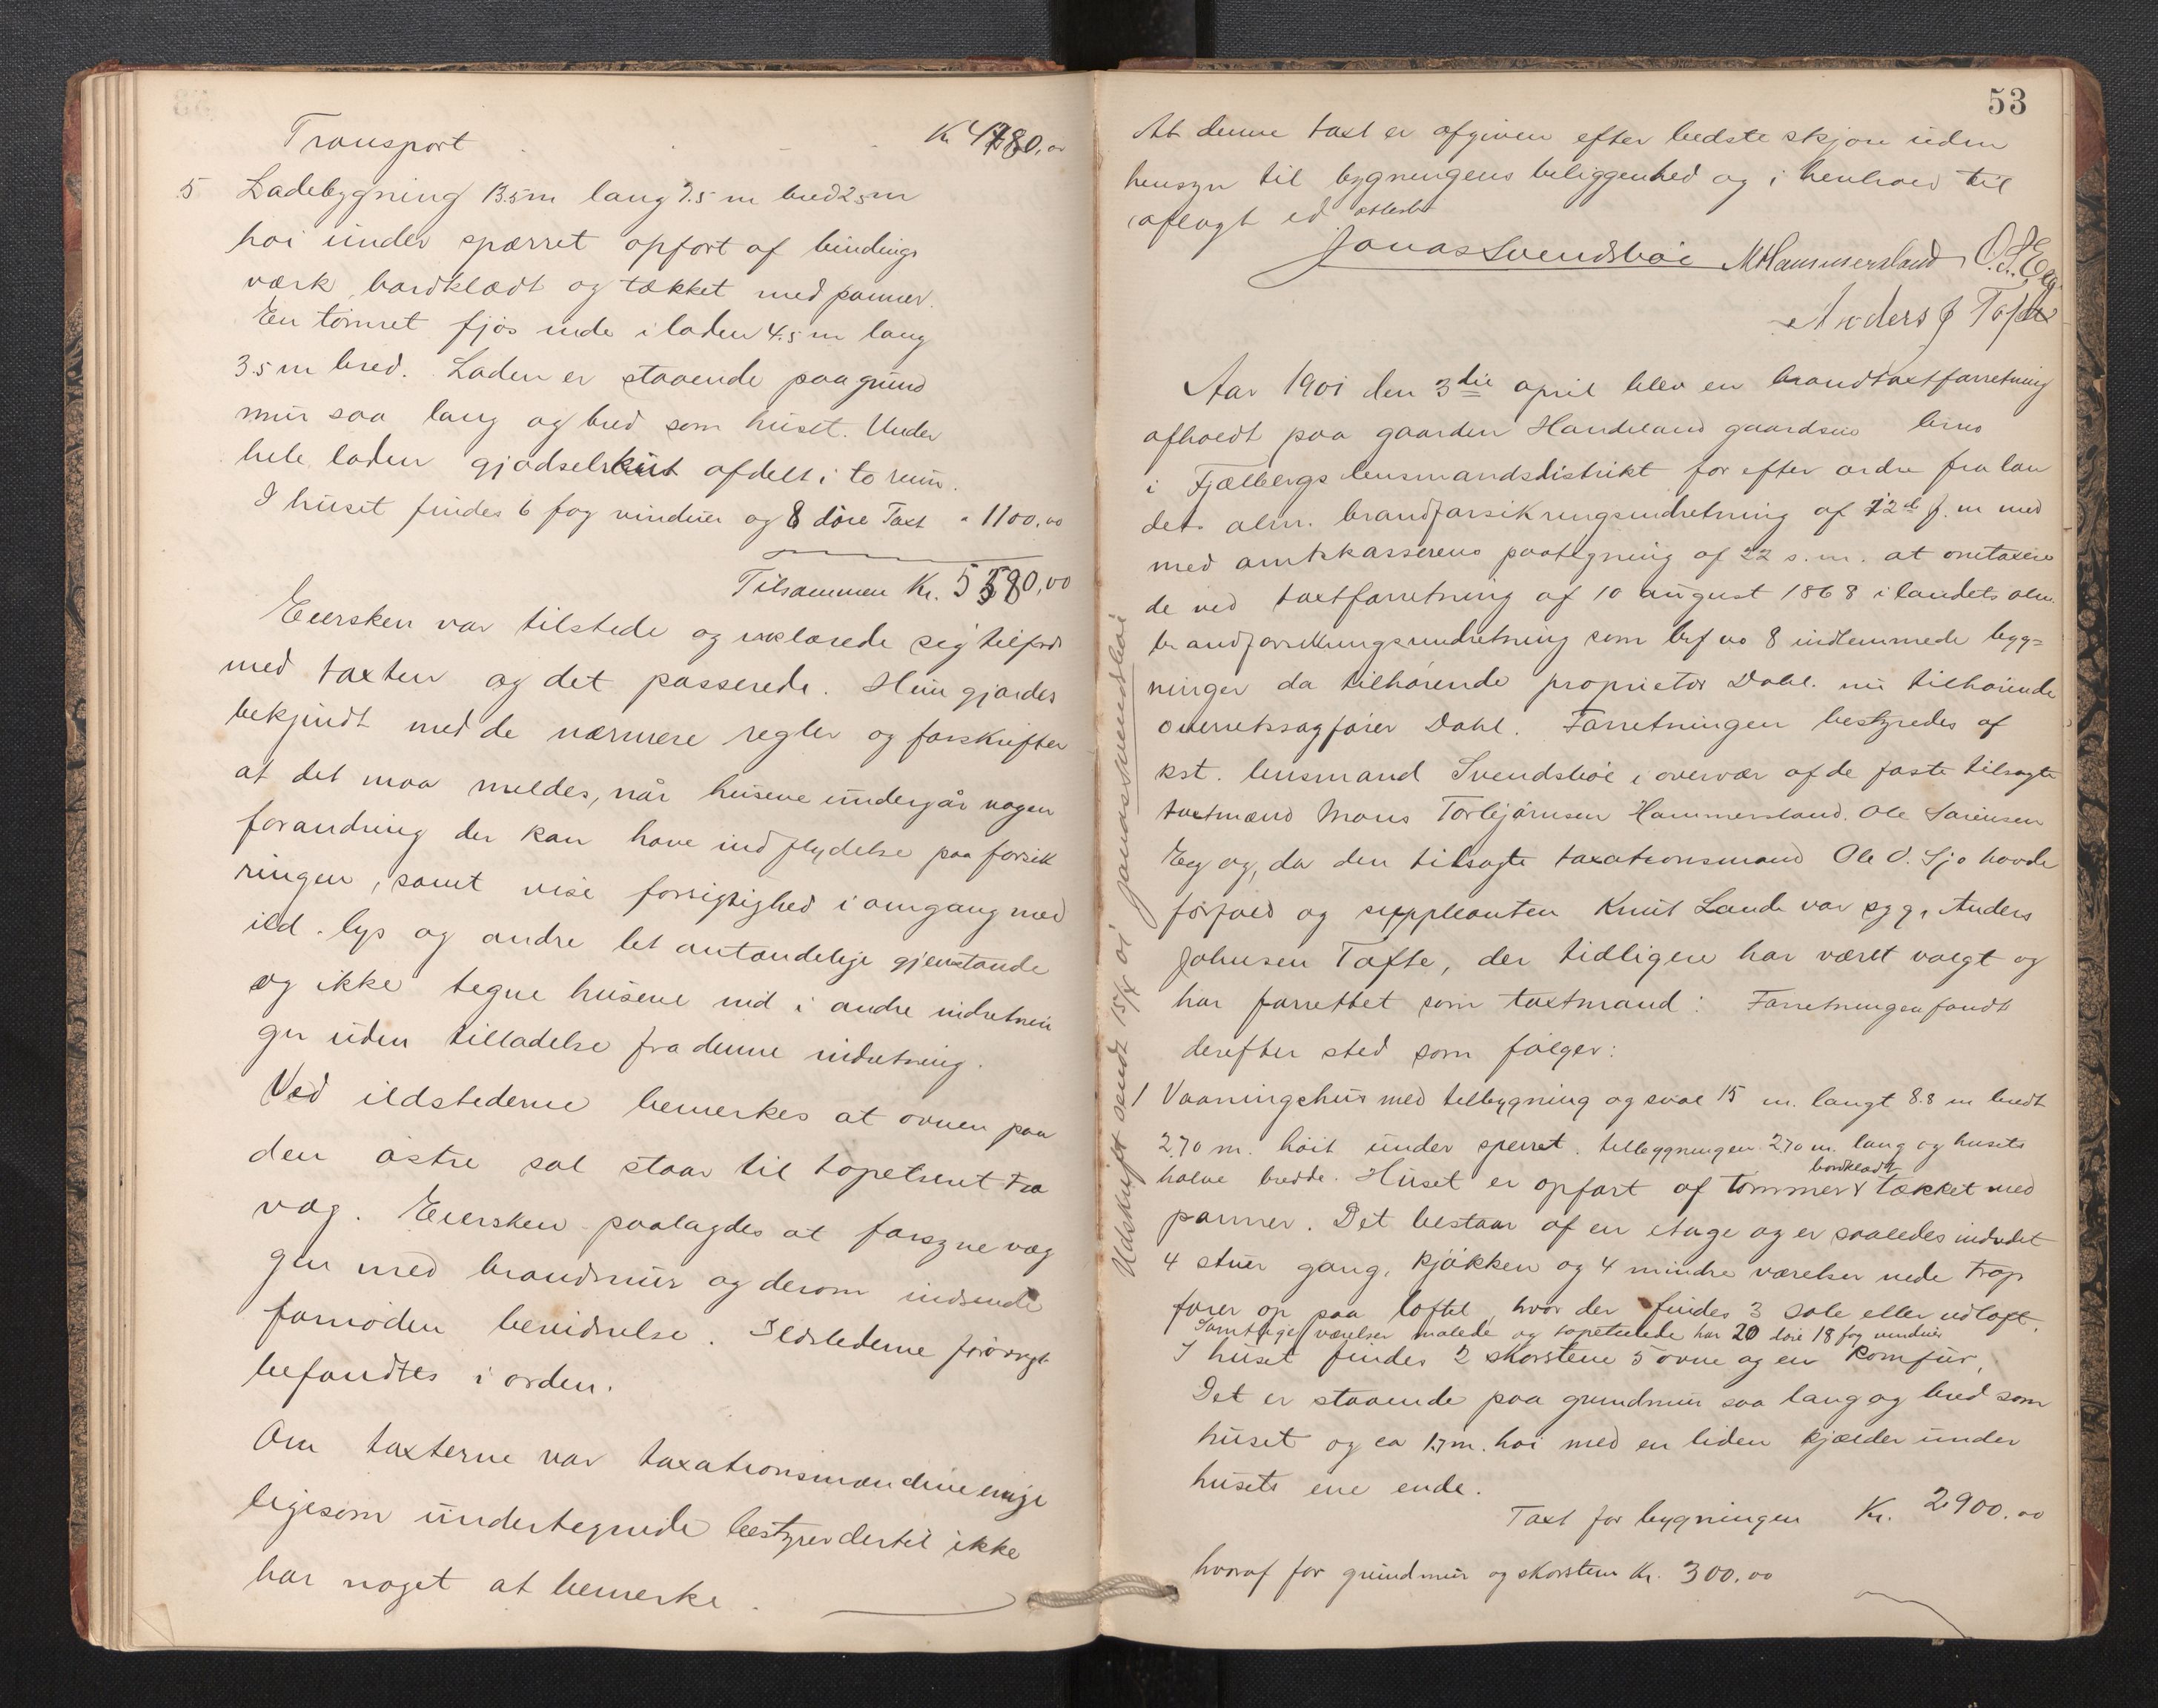 Transport Kr. 4480,00
5 Ladebygning 13.5m lang 7.5 m bred 2.5m
høi under spærret opført af bindings
værk bordklædt og tækket med panner.
En tømret fjøs inde i laden 4.5 m lang
3.5 m bred. Laden er staaende paa grund
mur saa lang og bred som huset. Under
hele laden gjødselskut afdelt i to rum.
I huset findes 6 fag vinduer og 8 døre Taxt " 1100,00
Tilsammen Kr. 5580,00
Eiersken var tilstede og erklærede sig tilfreds
med taxten og det passerede. Hun gjordes
bekjendt med de nærmere regler og forskrifter
at det maa meldes, når husene undergår nogen
forandring der kan have indflydelse paa forsik
ringen, samt vise forsigtighed i omgang med
ild, lys og andre let antændelige gjenstande
og ikke tegne husene ind i andre indretnin
ger uden tilladelse fra denne indretning.
Ved ildstederne bemerkes at ovnen paa
den østre sal staar til tapetseret træ
væg. Eiersken paalagdes at forsyne væg
gen med brandmur og derom indsende
fornøden bevidnelse. Ildstederne forøvrigt
befandtes i orden.
Om taxterne var taxationsmændene enige
ligesom undertegnede bestyrer dertil ikke
har noget at bemerke.
53
At denne taxt er afgiven efter bedste skjøn uden
hensyn til bygningens beliggenhed og i henhold til
aflagt ed attesteres
Jonas Svendsbøe M Hammersland, O. S. Eeg
Anders J Tofte
Udskrift sendt 15/4 01 Jonas Svendsbøe
Aar 1901 den 3die april blev en brandtaxtforretning
afholdt paa gaarden Handeland gaardsno brno
i Fjælbergs lensmandsdistrikt for efter ordre fra lan
dets alm. brandforsikringsindretning af 12te f. m med
med amtskasserens paategning af 22 s. m. at omtaxere
de ved taxtforretning af 10 august 1868 i landets alm.
brandforsikringsindretning som brf no 8 indlemmede byg=
ninger da tilhørende proprietær Dahl. nu tilhørende
overretssagfører Dahl. Forretningen bestyredes af
kst. lensmand Svendsbøe i overvær af de faste tilsagte
taxtmænd Mons Torbjørnsen Hammersland. Ole Sørensen
Eeg og, da den tilsagte taxationsmand Ole O. Sjo havde
forfald og suppleanten Knut Lande var syg, Anders
Johnsen Tofte, der tidligere har været valgt og
har forrettet som taxtmand: Forretningen fandt
derefter sted som følger:
1 Vaaningshus med tilbygning og sval 15 m. langt 8.8 m bredt
2.70 m. høit under sperret. tilbygningen 2.70 m. lang og husets
halve bredde. Huset er opført af tømmer bordklædt & tækket med
panner. Det bestaar af en etage og er saaledes indredet
4 stuer gang, kjøkken og 4 mindre værelser nede trap
fører op paa loftet, hvor der findes 3 sale eller udloft.
Samtlige værelser malede og tapetserede har 20 døre 18 fag vinduer
I huset findes 2 skorstene 5 ovne og en komfur,
Det er staaende paa grundmur saa lang og bred som
huset og ca 1.7 m. høi med en liden kjælder under
husets ene ende.
Taxt for bygningen Kr. 2900.00
hvoraf for grundmur og skorsten Kr. 300.00